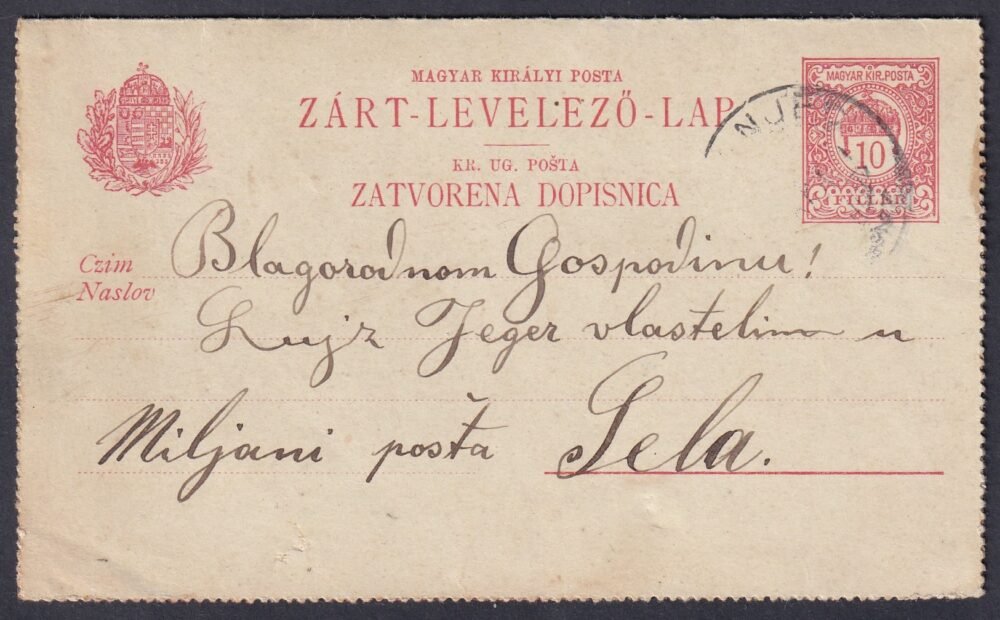 MAGYAR KIRÁLYI POSTA
ZÁRT-LEVELEZŐ-LAP
KR. UG. POŠTA
ZATVORENA DOPISNICA
MAGYAR KIR. POSTA
10
FILLÉR
Czim
Naslov
Blagorodnom Gospodinu!
Jeger vlastelin u
Miljani pošta Sela.